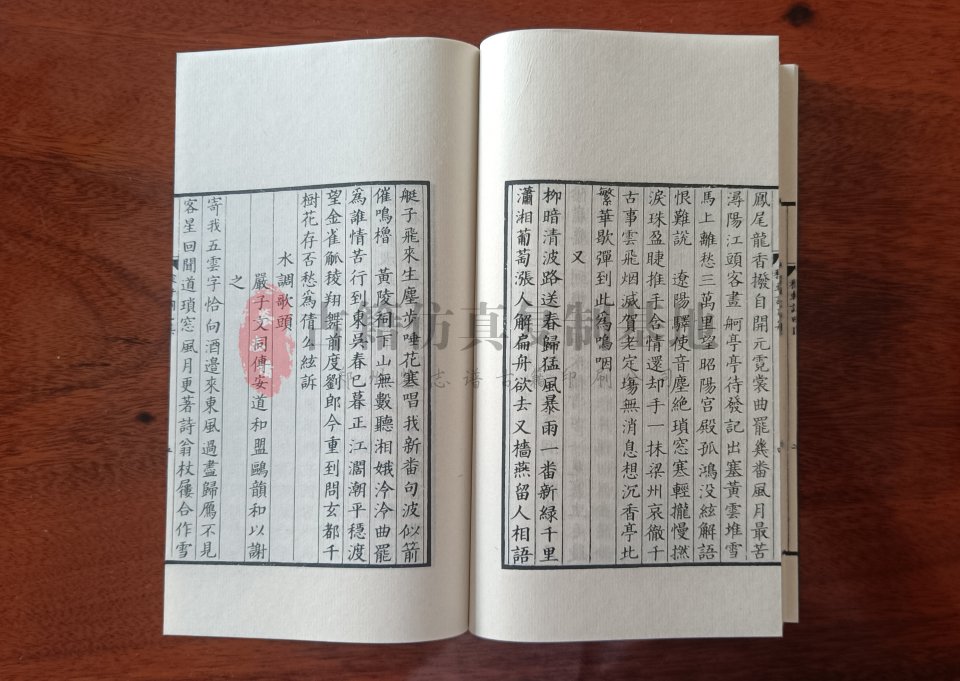 鳳尾龍香撥自開元霓裳曲罷幾畨風月最苦
潯陽江頭客畫舸亭亭待發記出塞黃雲堆雪
馬上離愁三萬里望昭陽宮殿孤鴻没絃解語
恨難說　遼陽驛使音塵絕瑣窓寒輕攏慢撚
淚珠盈睫推手含情還却手一抹梁州哀徹千
古事雲飛烟滅賀老定塲無消息想沉香亭北
繁華歇彈到此爲嗚咽
又
柳暗清波路送春歸猛風暴雨一畨新綠千里
瀟湘葡萄漲人解扁舟欲去又檣燕留人相語
艇子飛來生塵步唾花寒唱我新畨句波似箭
催鳴櫓　黃陵祠下山無數聽湘娥泠泠曲罷
爲誰情苦行到東吳春已暮正江濶潮平穩渡
望金雀觚稜翔舞前度劉郎今重到問玄都千
樹花存否愁爲倩么絃訴
水調歌頭
嚴子文同傅安道和盟鷗韻和以謝
之
寄我五雲字恰向酒邊來東風過盡歸鴈不見
客星回聞道瑣窓風月更著詩翁杖屨合作雪